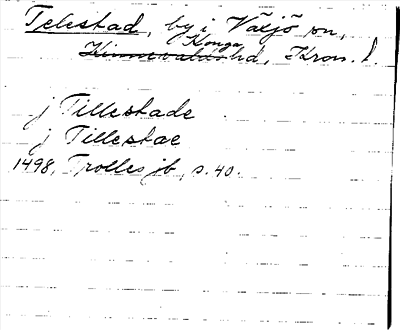 Telestad, by i Växjö sn,
Konga
Kinnevalds hd, Kron. l.
j Tillestade
j Tillestae
1498, Trolles jb, s. 40.